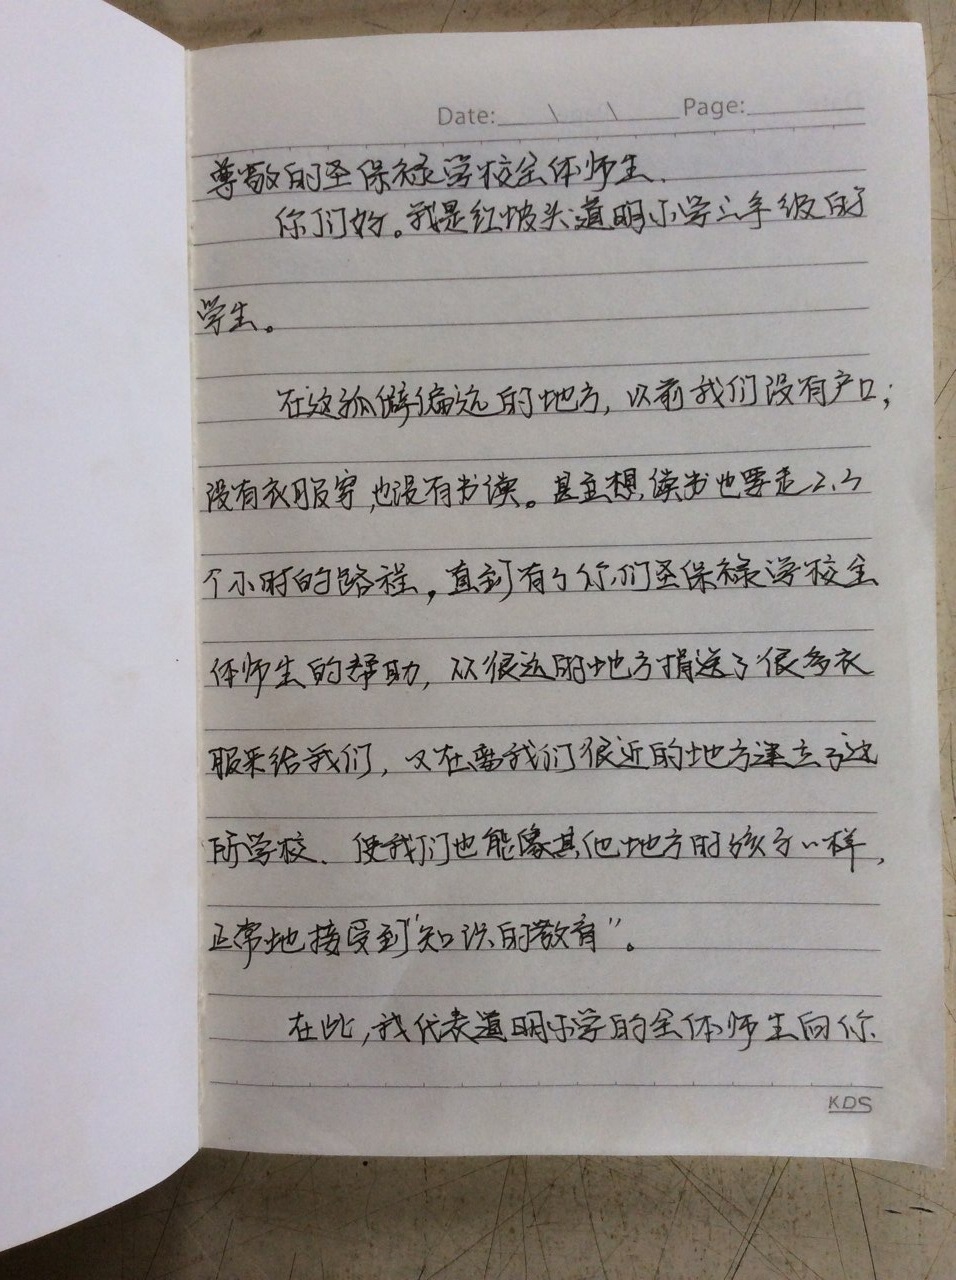 Date: \ \ Page:
尊敬的圣保禄学校全体师生.
你们好。我是红坡头道明小学三年级的
学生。
在这孤僻偏远的地方,以前我们没有户口;
没有衣服穿,也没有书读。甚至想读书也要走2.3
个小时的路程。直到有了你们圣保禄学校全
体师生的帮助,从很远的地方捐送了很多衣
服来给我们,又在离我们很近的地方建立了这
所学校.使我们也能像其他地方的孩子一样,
正常地接受到“知识的教育”。
在此,我代表道明小学的全体师生向你
KDS